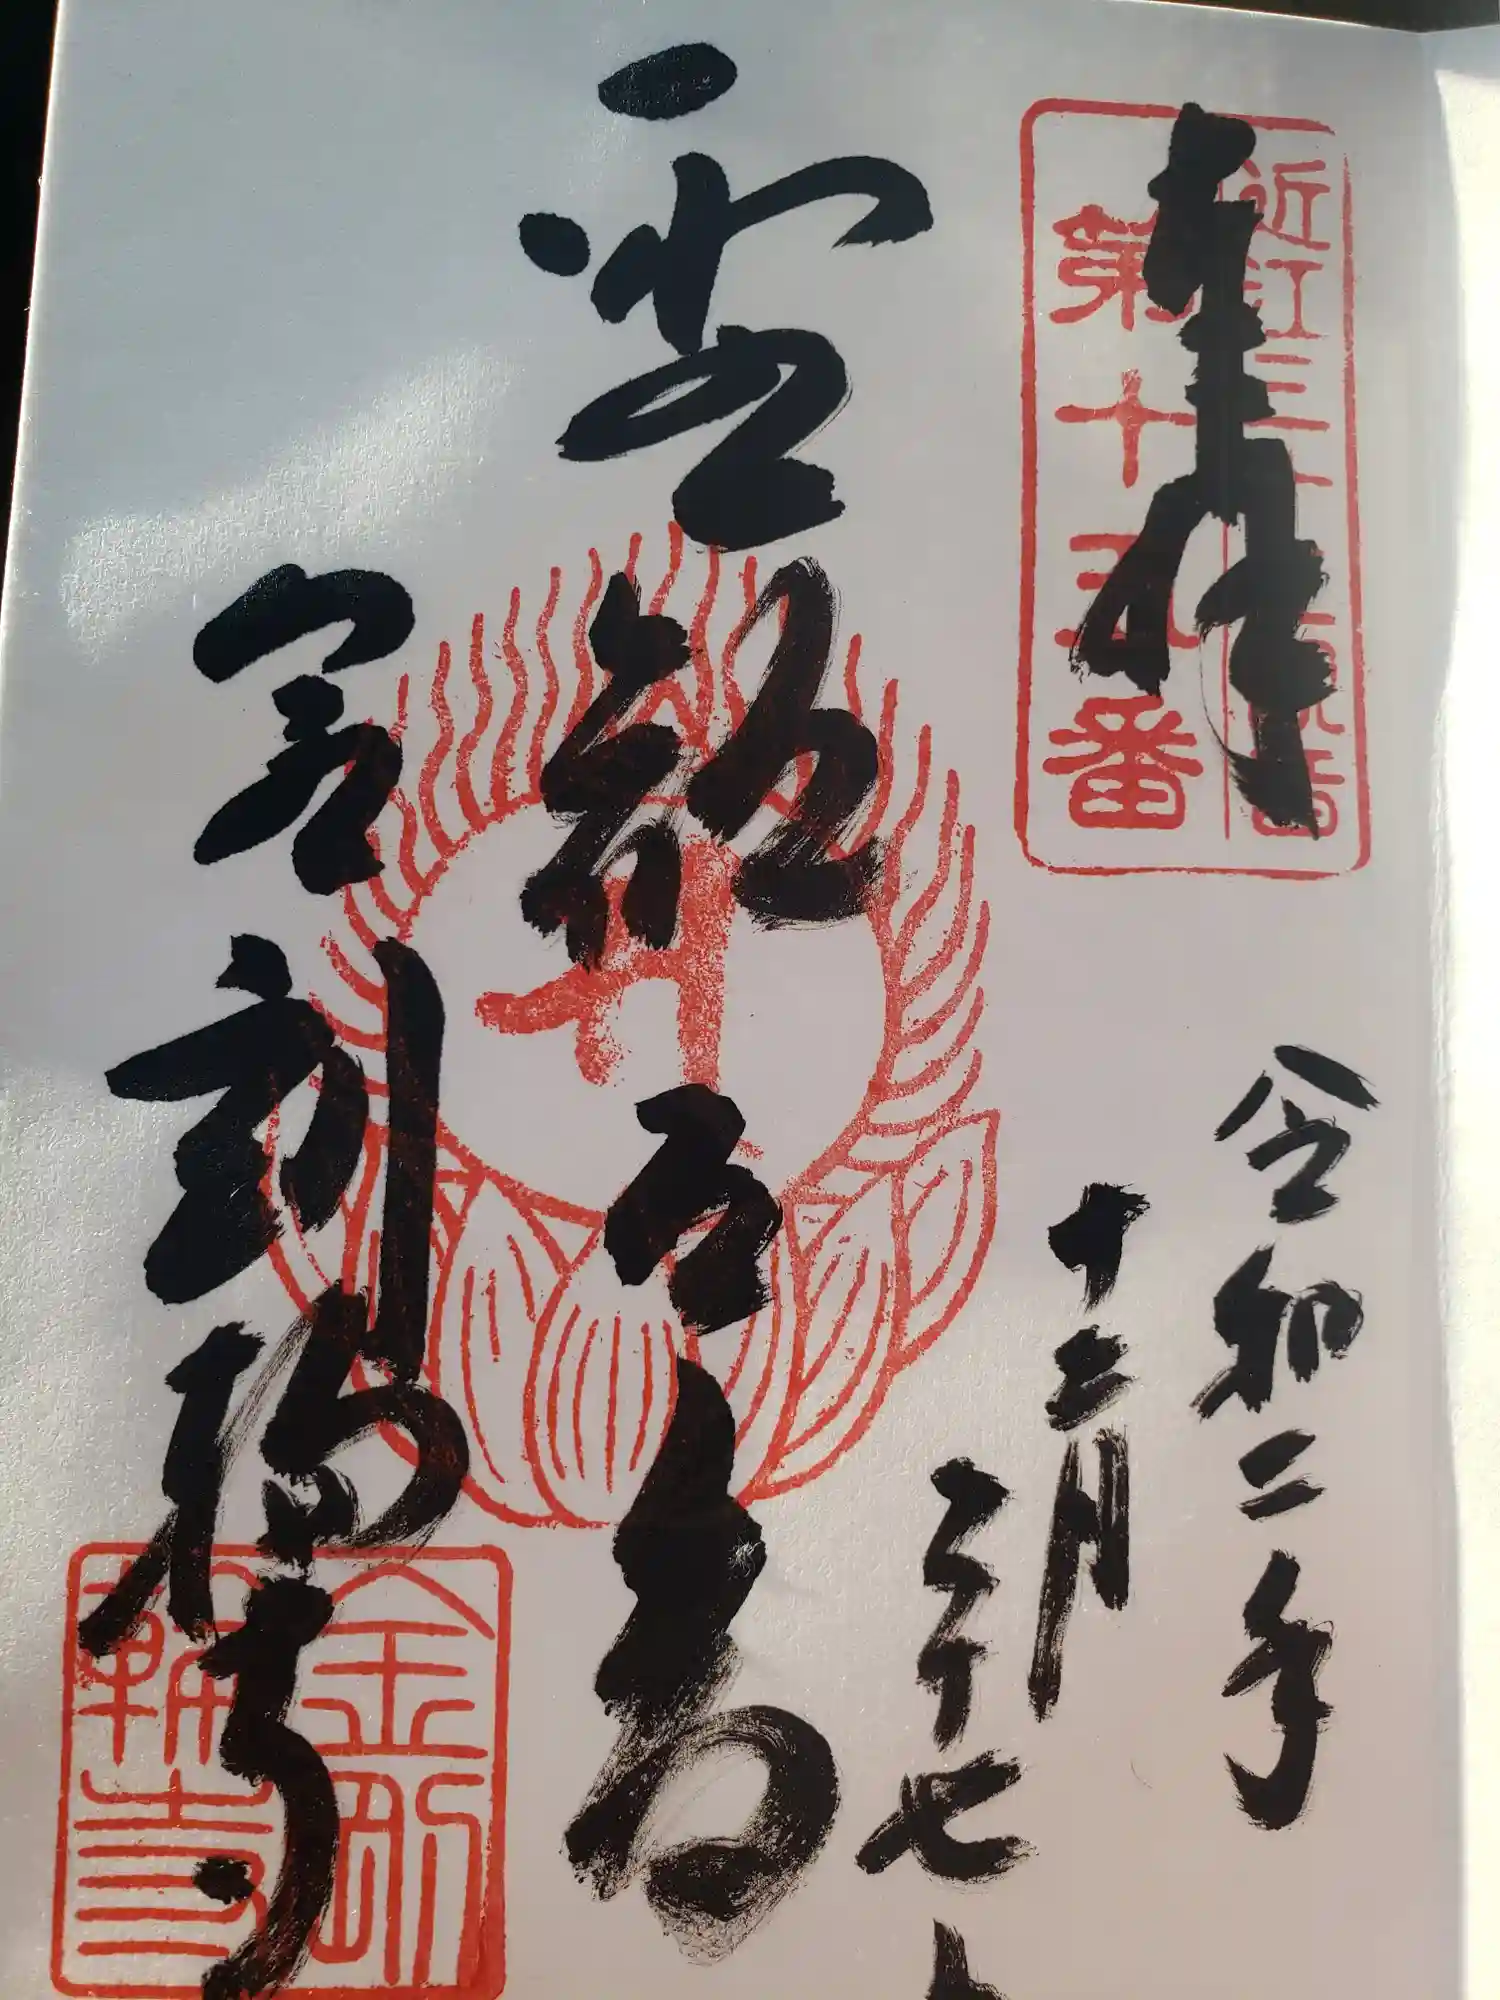 奉拝
近江三十三観音
第十五番
令和二年
十二月
二十七日
聖観世音
金剛輪寺
金剛
輪寺